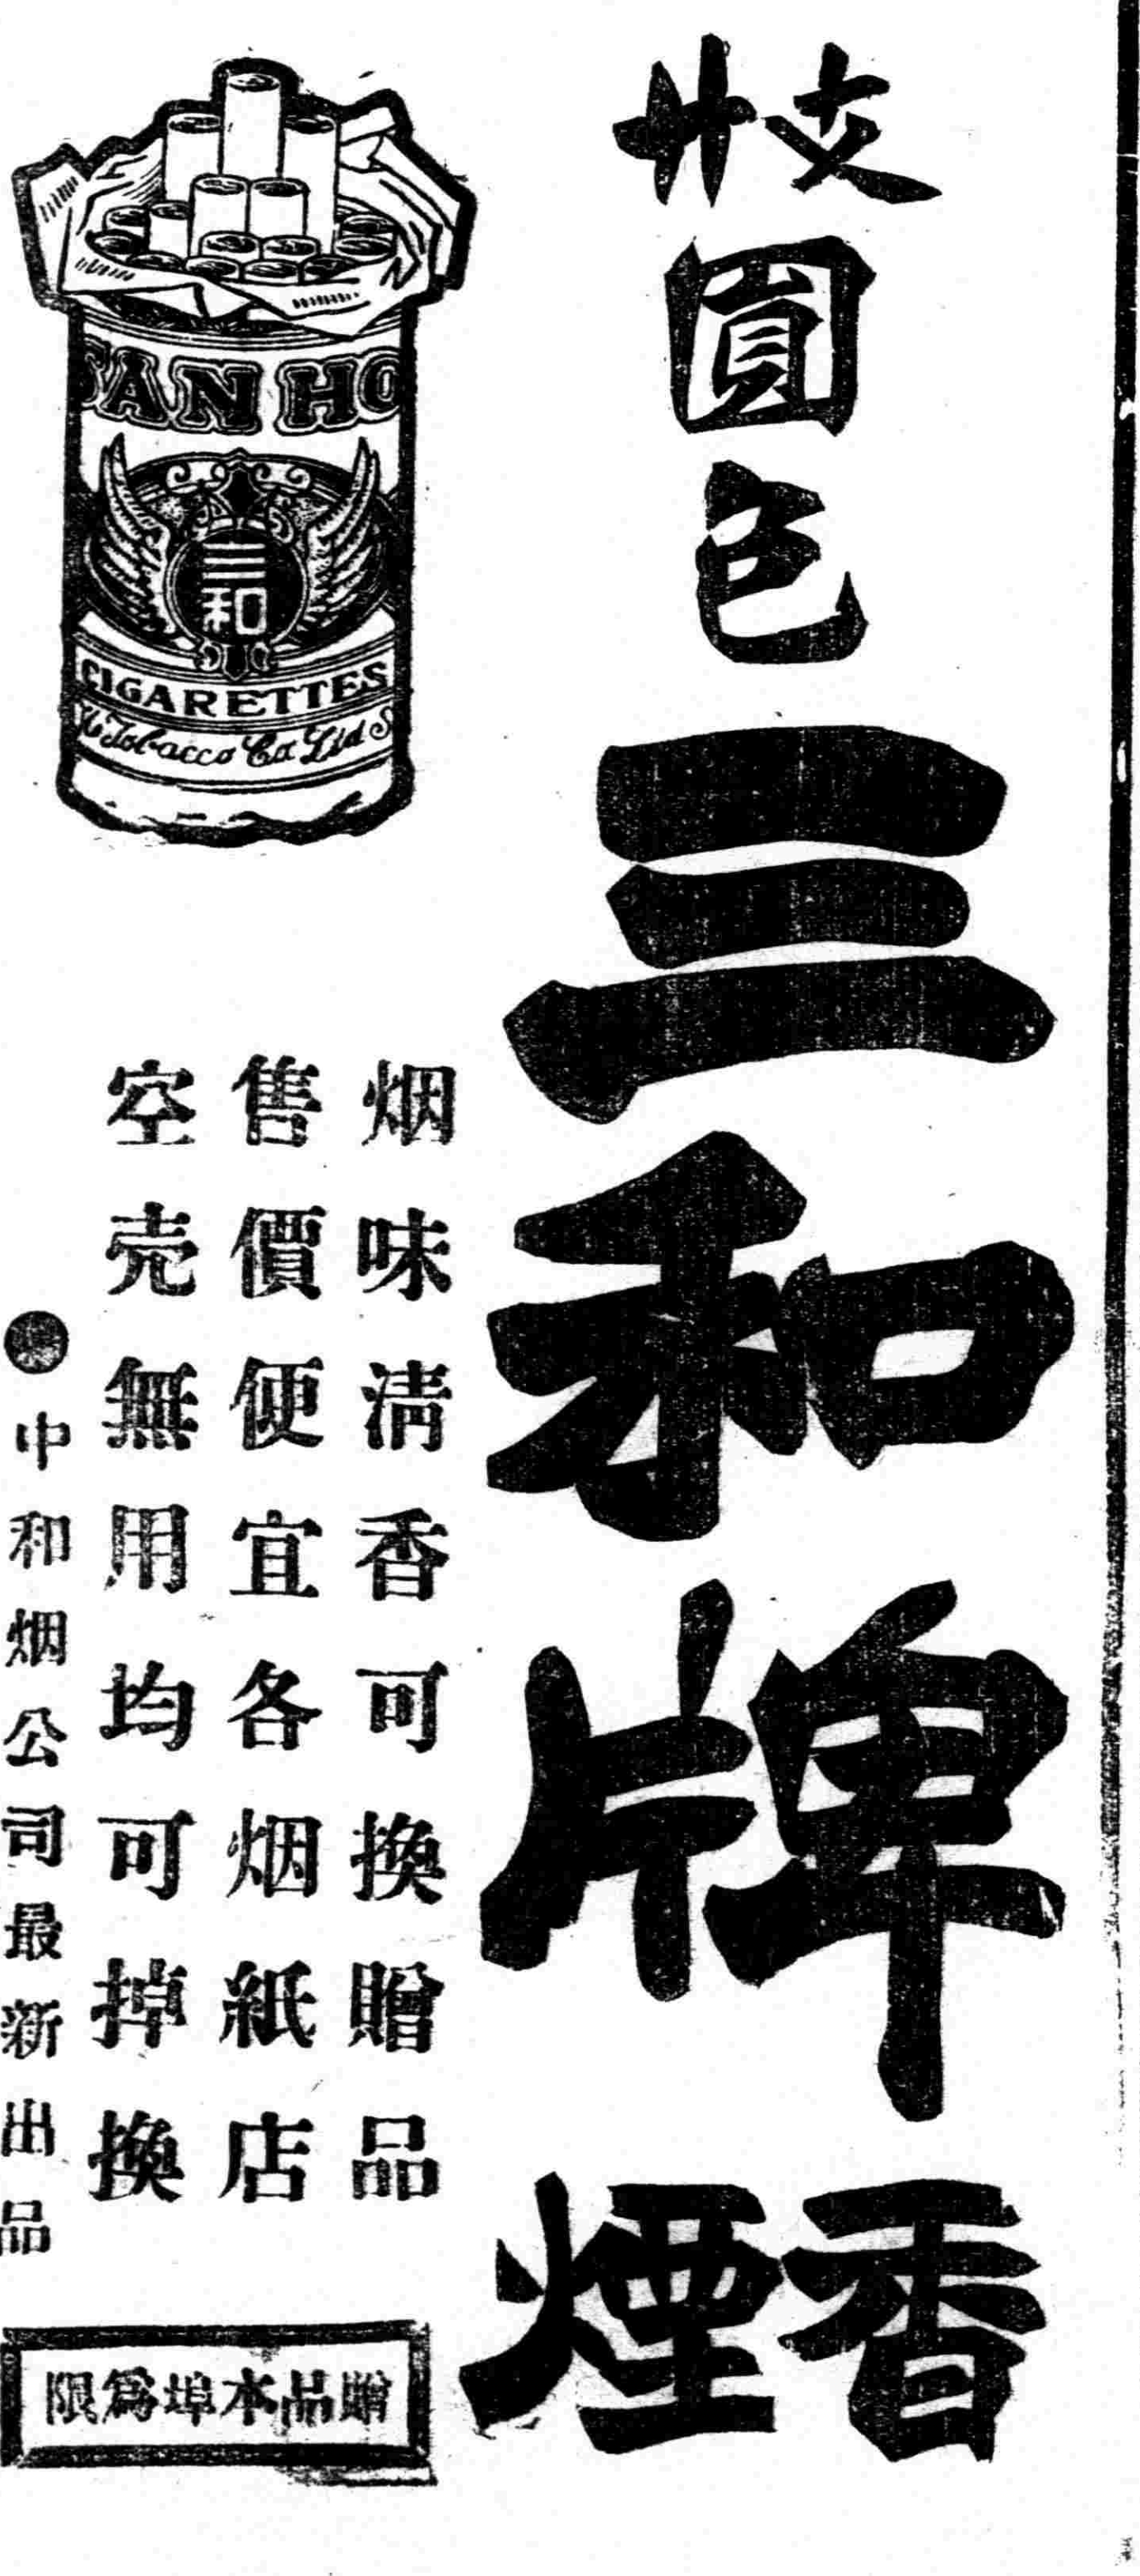 廿支
圓包
三和牌
香煙
SAN HO
三和
CIGARETTES
Tobacco Co Ltd
烟味清香可換贈品
售價便宜各烟紙店
空壳無用均可掉換
●中和烟公司最新出品
贈品本埠爲限